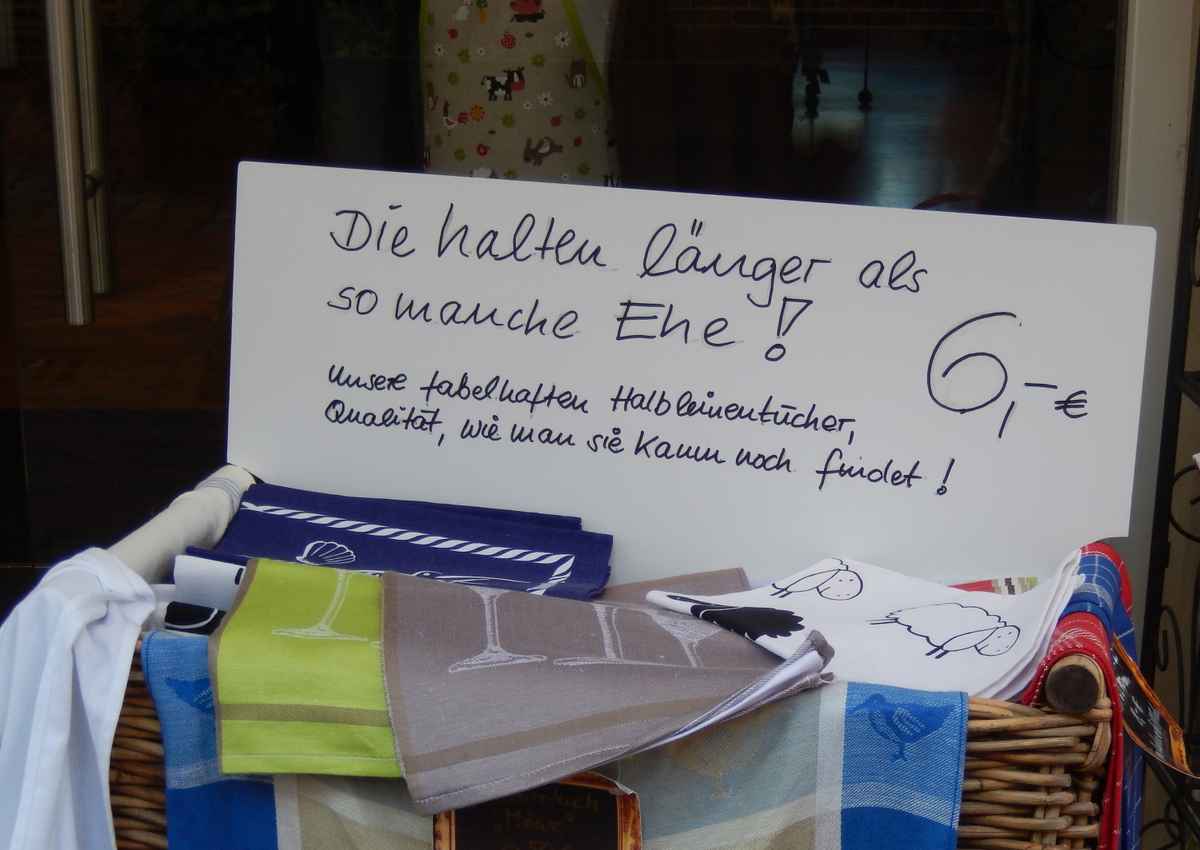 Die halten länger als
so manche Ehe!
6,-€
Unsere fabelhaften Halbleinentücher,
Qualität, wie man sie kaum noch findet!
"Möwe"